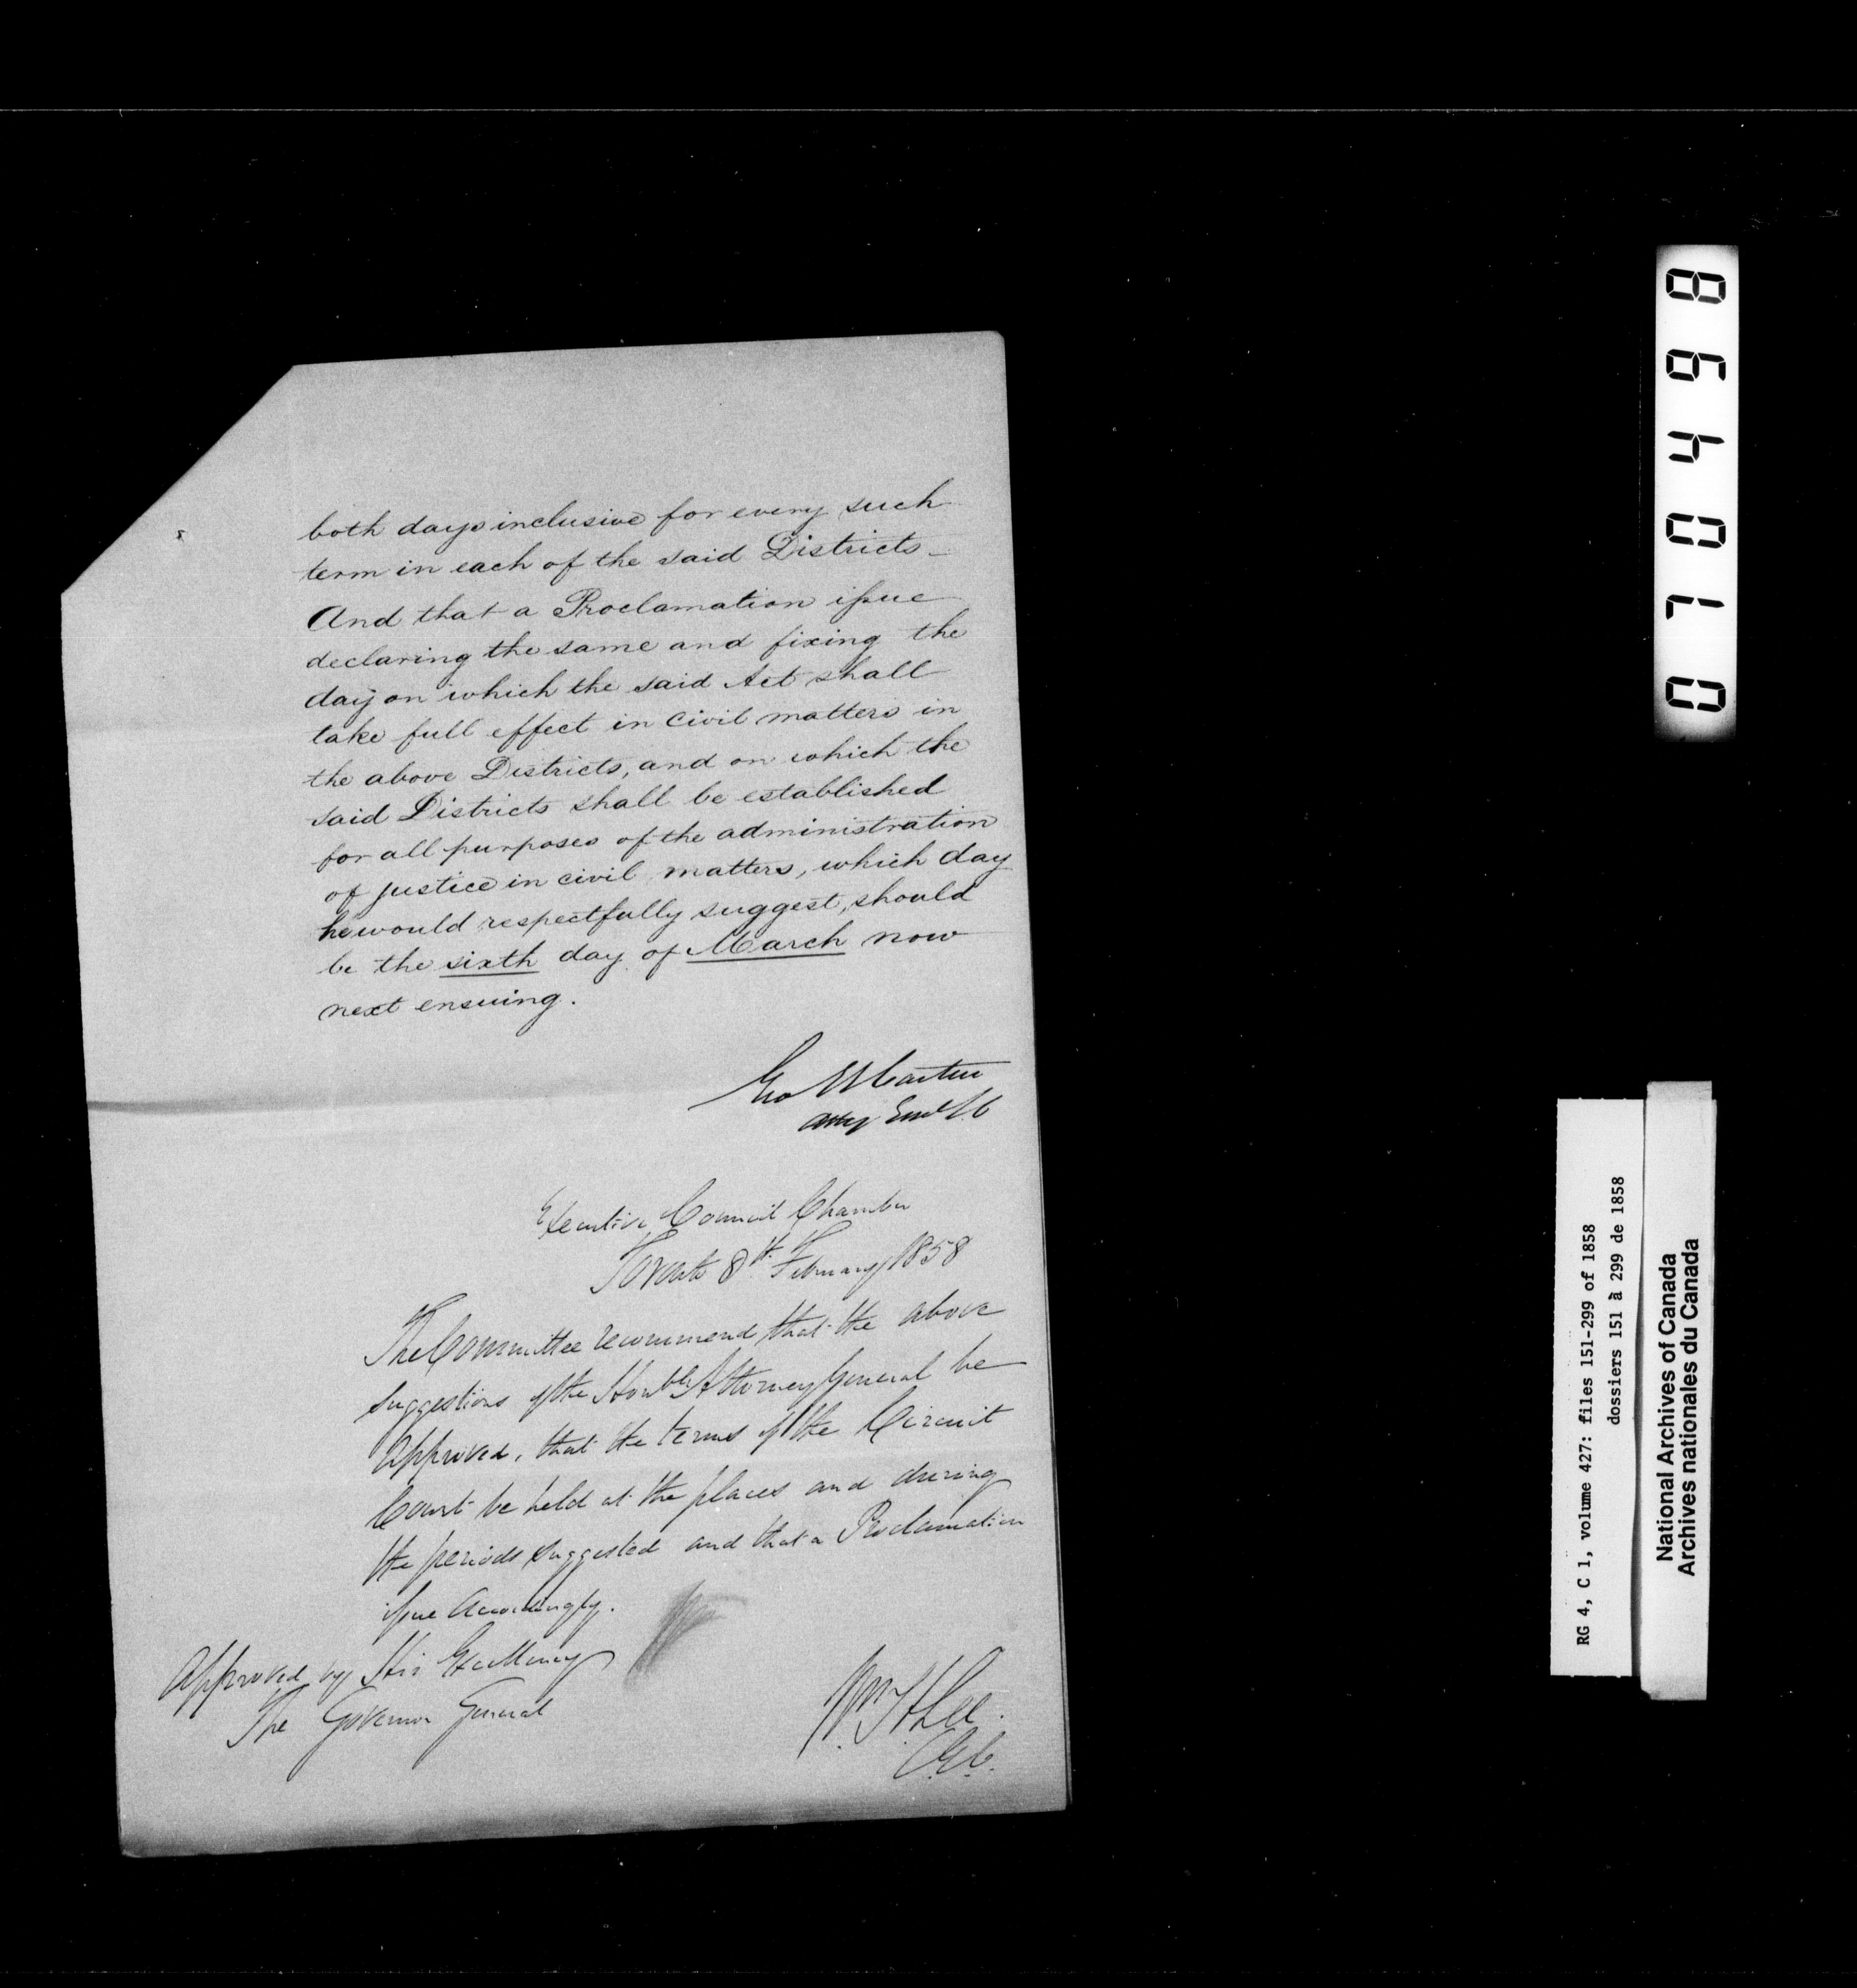 both days inclusive for every such
term in each of the said Districts _
And that a Proclamation issue
declaring the same and fixing the
day on which the said Act shall
take full effect in civil matters in
the above Districts, and on which the
said Districts shall be established
for all purposes of the administration
of justice in civil matters, which day
he would respectfully suggest, should
be the sixth day of March now
next ensuing.
Geo E Cartier
Atty Genl LC
Executive Council Chamber
Toronto 8th February 1858
The Committee recommend that the above
suggestions of the Honble Attorney General be
approved, that the terms of the Circuit
Court be held at the places and during
the periods suggested and that a Proclamation
issue accordingly.
Approved by His Excellency
The Governor General
Wm H Lee.
C.E.C.
070498
RG 4, C 1, volume 427: files 151-299 of 1858
dossiers 151 à 299 de 1858
National Archives of Canada
Archives nationales du Canada